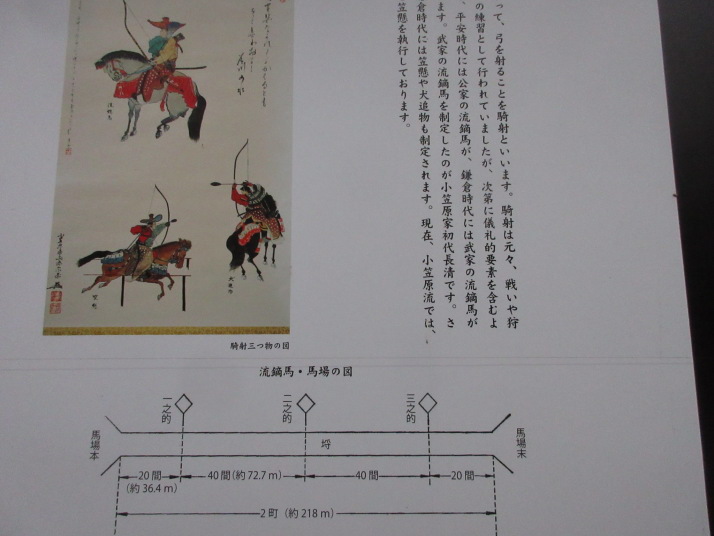 って、弓を射ることを騎射といいます。騎射は元々、戦いや狩
の練習として行われていましたが、次第に儀礼的要素を含むよ
、平安時代には公家の流鏑馬が、鎌倉時代には武家の流鏑馬が
ます。武家の流鏑馬を制定したのが小笠原家初代長清です。さ
倉時代には笠懸や犬追物も制定されます。現在、小笠原流では、
笠懸を執行しております。
流鏑馬
犬追物
笠懸
騎射三つ物の図
流鏑馬・馬場の図
一之的
二之的
三之的
馬場本
埒
馬場末
20間
(約36.4m)
40間(約72.7m)
40間
20間
2町(約218m)